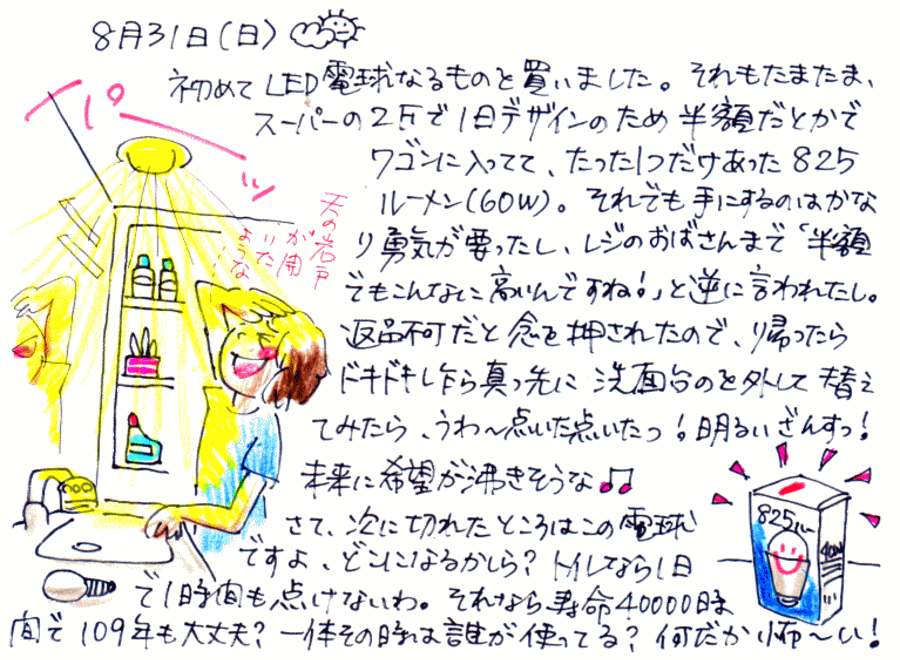 8月31日(日)
初めてLED電球なるものと買いました。それもたまたま、
スーパーの2Fで旧デザインのため半額だとかで
ワゴンに入ってて、たった1つだけあった825
ルーメン(60W)。それでも手にするのはかな
り勇気が要ったし、レジのおばさんまで「半額
でもこんなに高いんですね!」と逆に言われたし。
返品不可だと念を押されたので、帰ったら
ドキドキし乍ら真っ先に洗面台のを外して替え
てみたら、うわ〜点いた点いたっ!明るいざんすっ!
未来に希望が沸きそうな♫
さて、次に切れたところはこの電球
ですよ、どこになるかしら?トイレなら1日
で1時間も点けないわ。それなら寿命40000時
間で109年も大丈夫?一体その時は誰が使ってる?何だか怖〜い!
パーッ
天の岩戸
が開
いた
ような…
825ルー